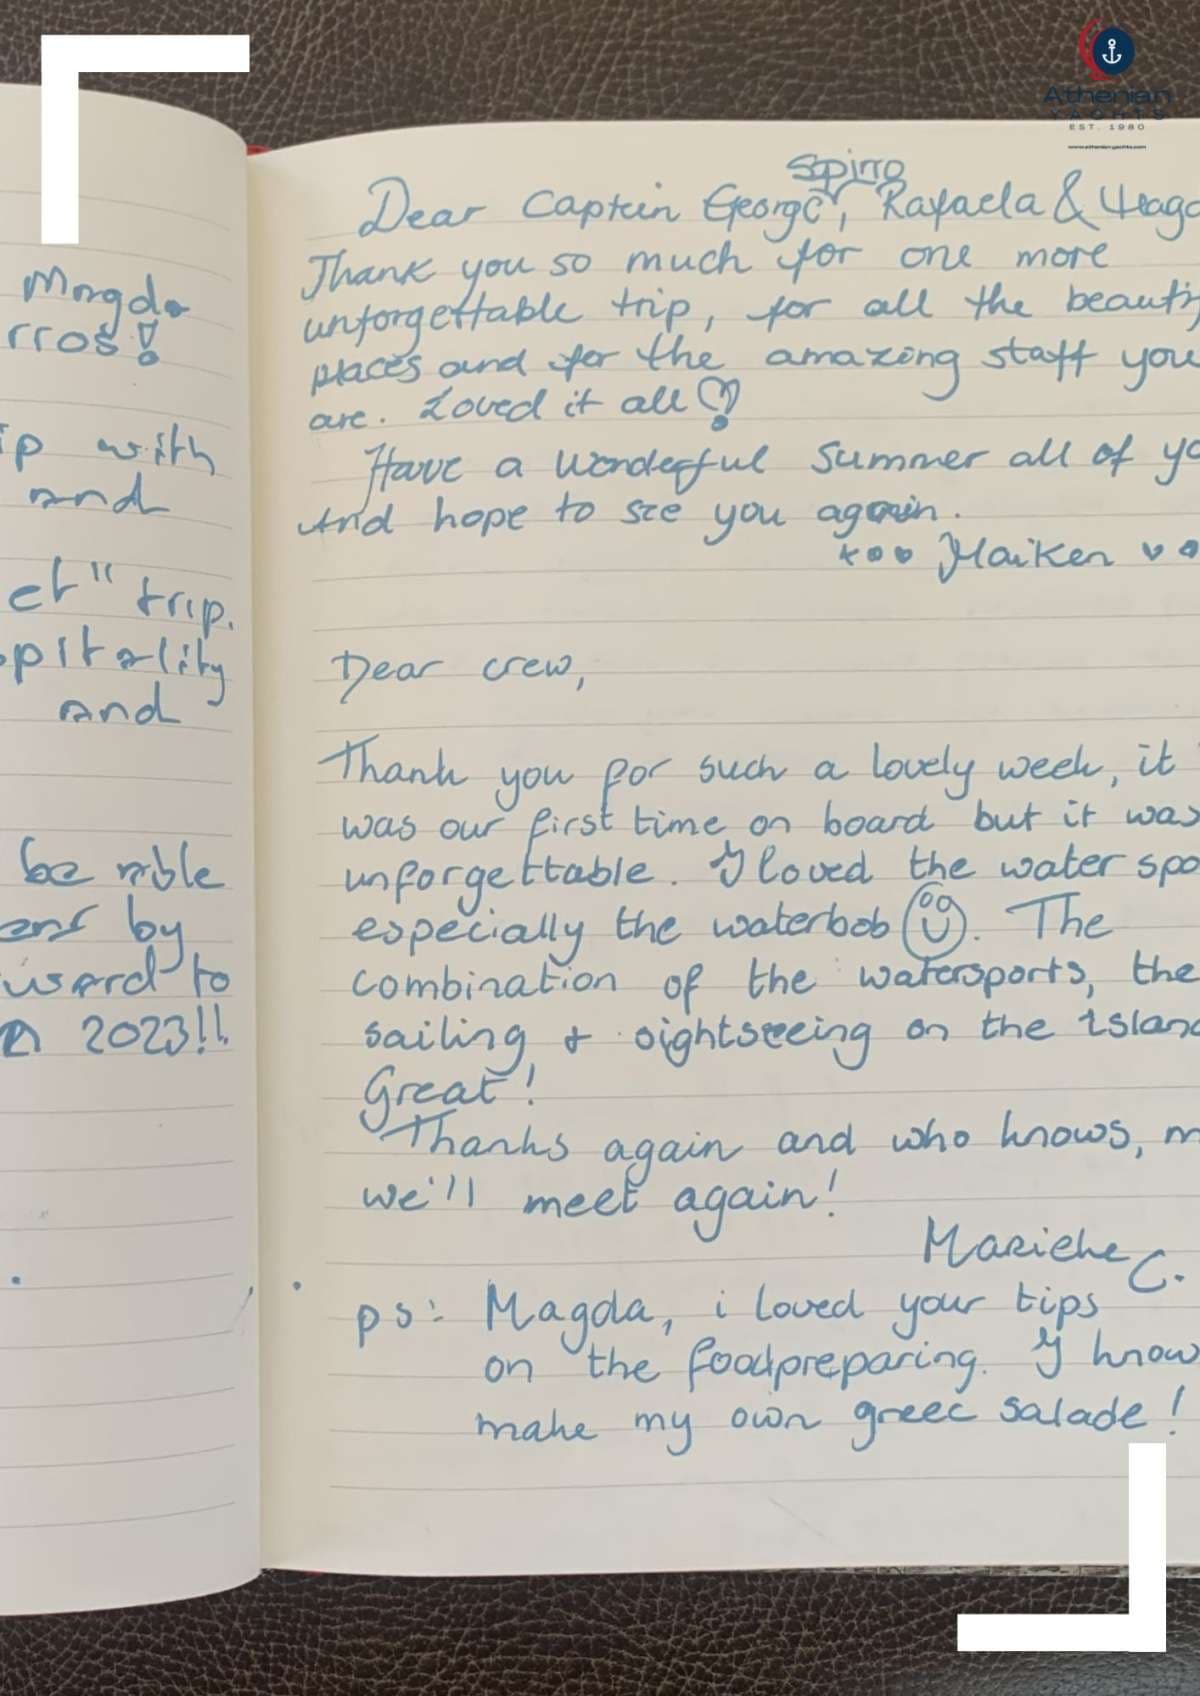 Athenian
YACHTS
EST. 1980
www.athenian-yachts.com
Magda
rros!
ip with
and
et" trip.
spitality
and
be able
by
ward to
2023!!
Spirro
Dear Captein George, Rafaela &
Thank you so much for one more
unforgettable trip, for all the beautif
places and for the amazing staff you
are. Loved it all
Have a wonderful summer all of yo
And hope to see you again.
xoo Maiken
Dear crew,
Thank you for such a lovely week, it
was our first time on board but it was
unforgettable. I loved the water spo
especially the waterbob. The
combination of the watersports, the
sailing + sightseeing on the island
Great!
Thanks again and who knows, m
we'll meet again!
Marieke C.
ps: Magda, i loved your tips
on the foodpreparing. I know
make my own greec salade!